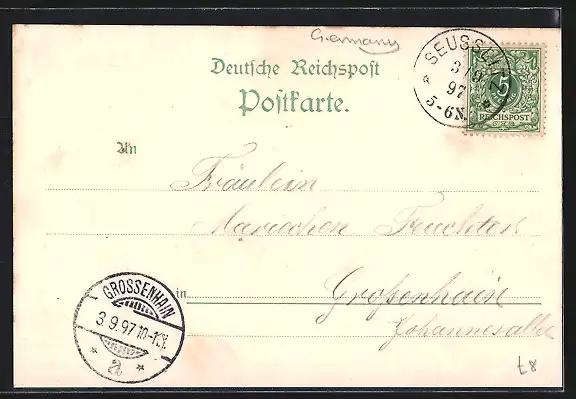 Germany
Deutsche Reichspost
Postkarte.
SEUSSLITZ
3/9
97
5-6N.
5
REICHSPOST
An
Fräulein
Mariechen
in Großenhain
Johannesallee
GROSSENHAIN
3.9.97.10-11V.
a
t8